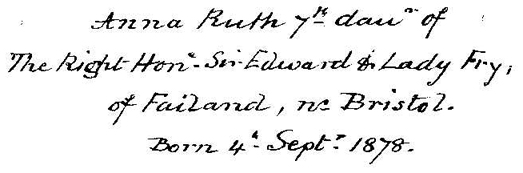 Anna Ruth 7th daur of
The Right Honl. Sir Edward & Lady Fry,
of Failand, nr Bristol.
Born 4th Septr 1878.